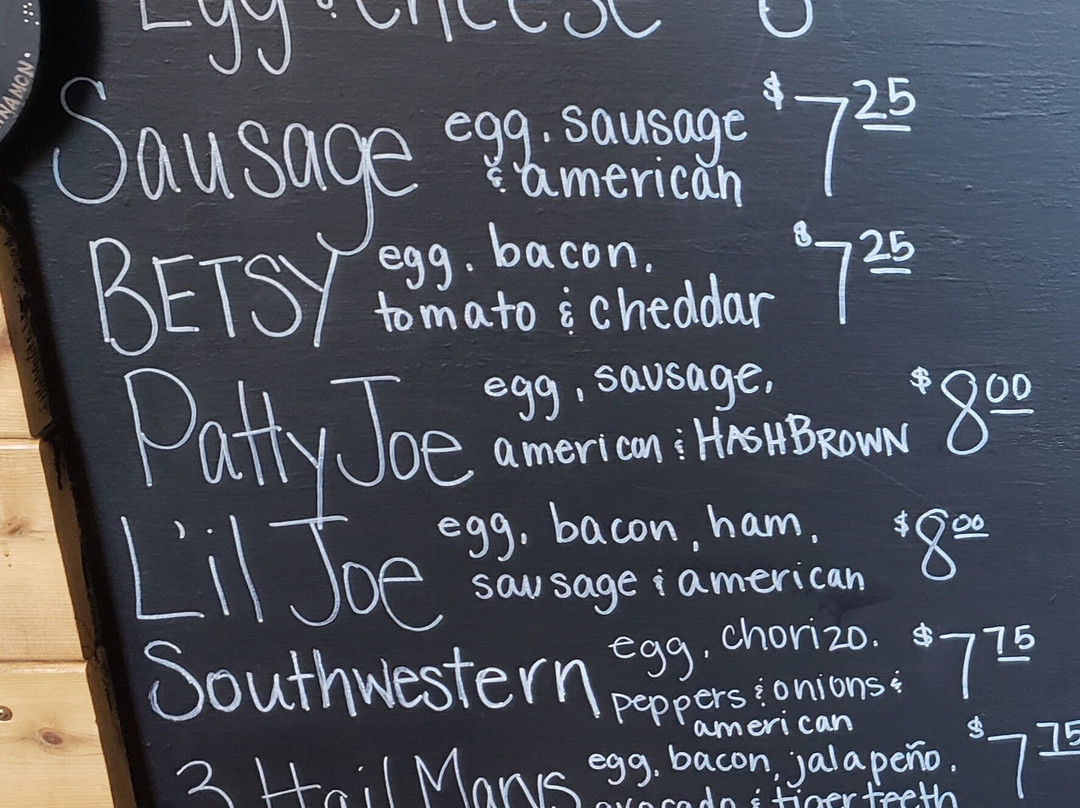 Egg & Cheese
Sausage egg, sausage $7 25
& american
BETSY egg, bacon, $7 25
tomato & cheddar
Patty Joe egg, sausage, $8 00
american & HASHBROWN
L'il Joe egg, bacon, ham, $8 00
sausage & american
Southwestern egg, chorizo, $7 75
peppers & onions &
american
3 Hail Marys egg, bacon, jalapeño, $7 75
avocado & tiger teeth